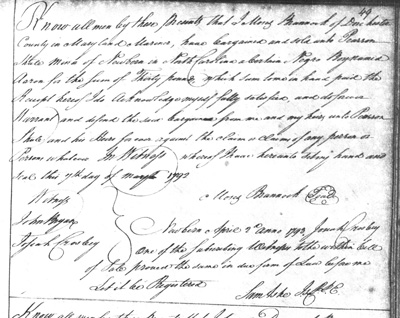 Know all men by these Presents that I Mosey Brannock of Dorchester
County in Maryland Marener, have bargained and sold unto Pearson
of Newbern in North Carolina a certain Negro Boy named
Aaron for the Sum of Thirty which sum being in hand paid the
Receipt hereof I do Acknowledge myself fully satisfied, and do farther
Warrant and defend the said bargained from me and my heirs unto Pearson
and his Heirs for ever against the claim or claims of any person or
Persons whatsoever In Witness whereof I have hereunto set my hand and
Seal this 7th day of march 1792
Mosey Brannock Seal
Witness
John
Josiah Crosby
Newbern April 2d anno 1793, Josiah Crosby
one of the Subscribing Witnesses to the within bill
of Sale proved the same in due form of Law before me
Let it be Registered
Sam Ashe
Know all men by